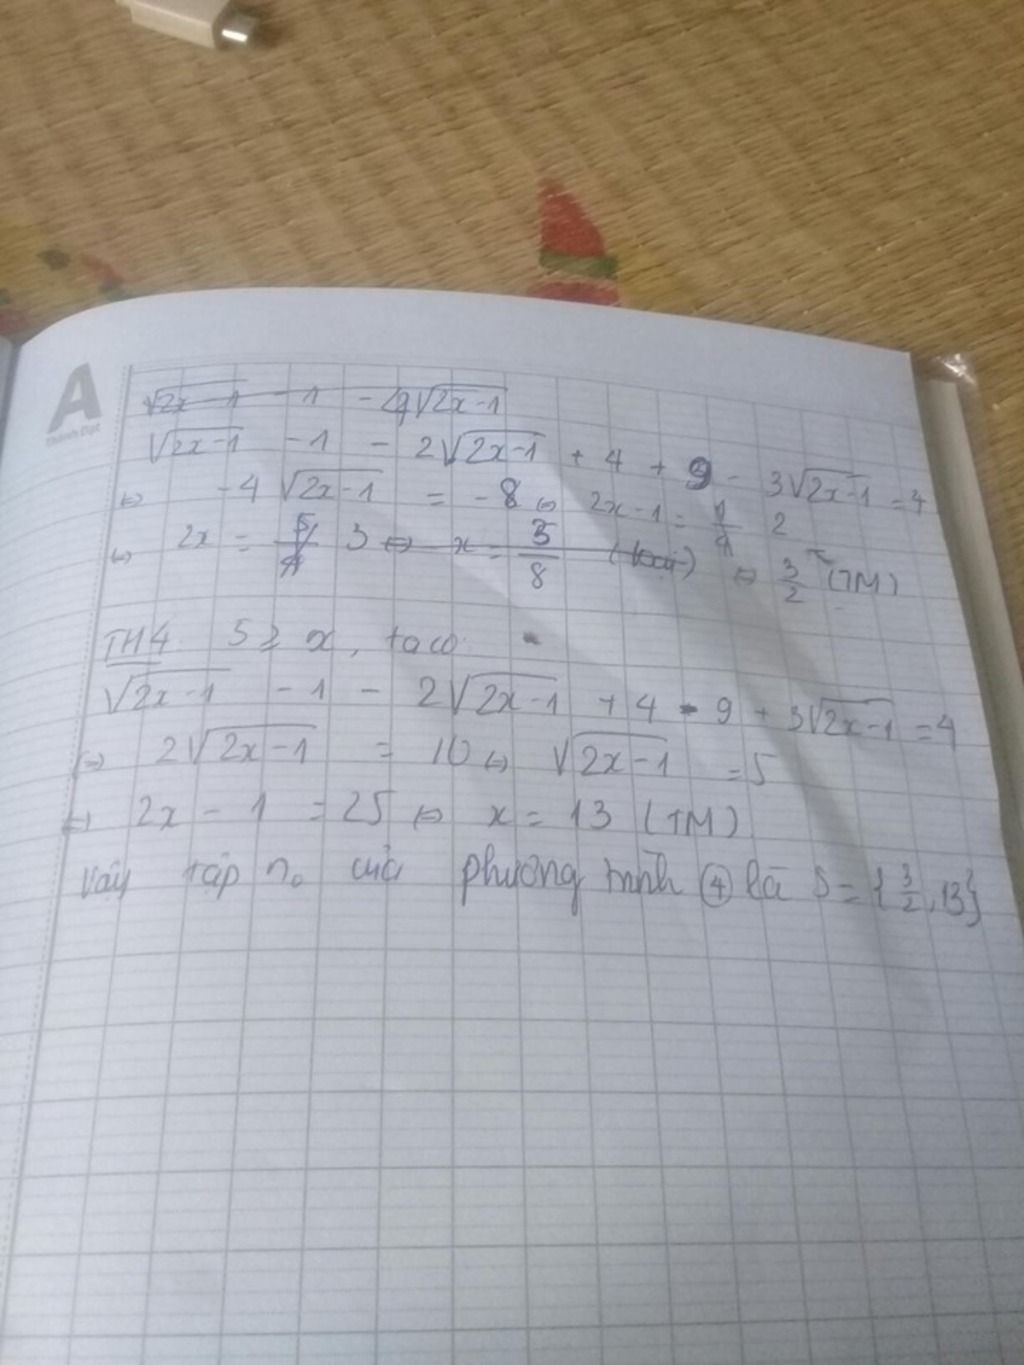 A
Thành Đạt
√2x-1 - 1 - 4√2x-1
√2x-1 - 1 - 2√2x-1 + 4 + 9 - 3√2x-1 = 4
⇔ -4 √2x-1 = -8 ⇔ 2x-1 = 2
⇔ 2x = 3 ⇔ x = 5/8 (loại) ⇔ 3/2 (TM)
TH4 5 ≥ x, ta có
√2x-1 - 1 - 2√2x-1 + 4 - 9 + 3√2x-1 = 4
⇔ 2√2x-1 = 10 ⇔ √2x-1 = 5
⇔ 2x - 1 = 25 ⇔ x = 13 (TM)
Vậy tập no của phương trình ④ là S = {3/2, 13}